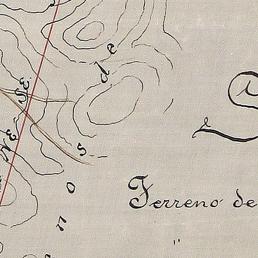 de
SE
NE
s
o
n
Terreno de
"